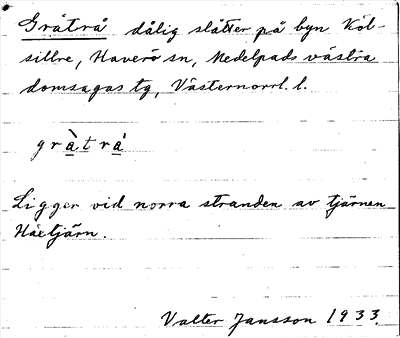 Gråtrå dålig slåtter på byn Köl-
sillre, Haverö sn, Medelpads västra
domsagas tg, Västernorrl. l.
gràtrá
Ligger vid norra stranden av tjärnen
Håxtjärn.
Valter Jansson 1933.